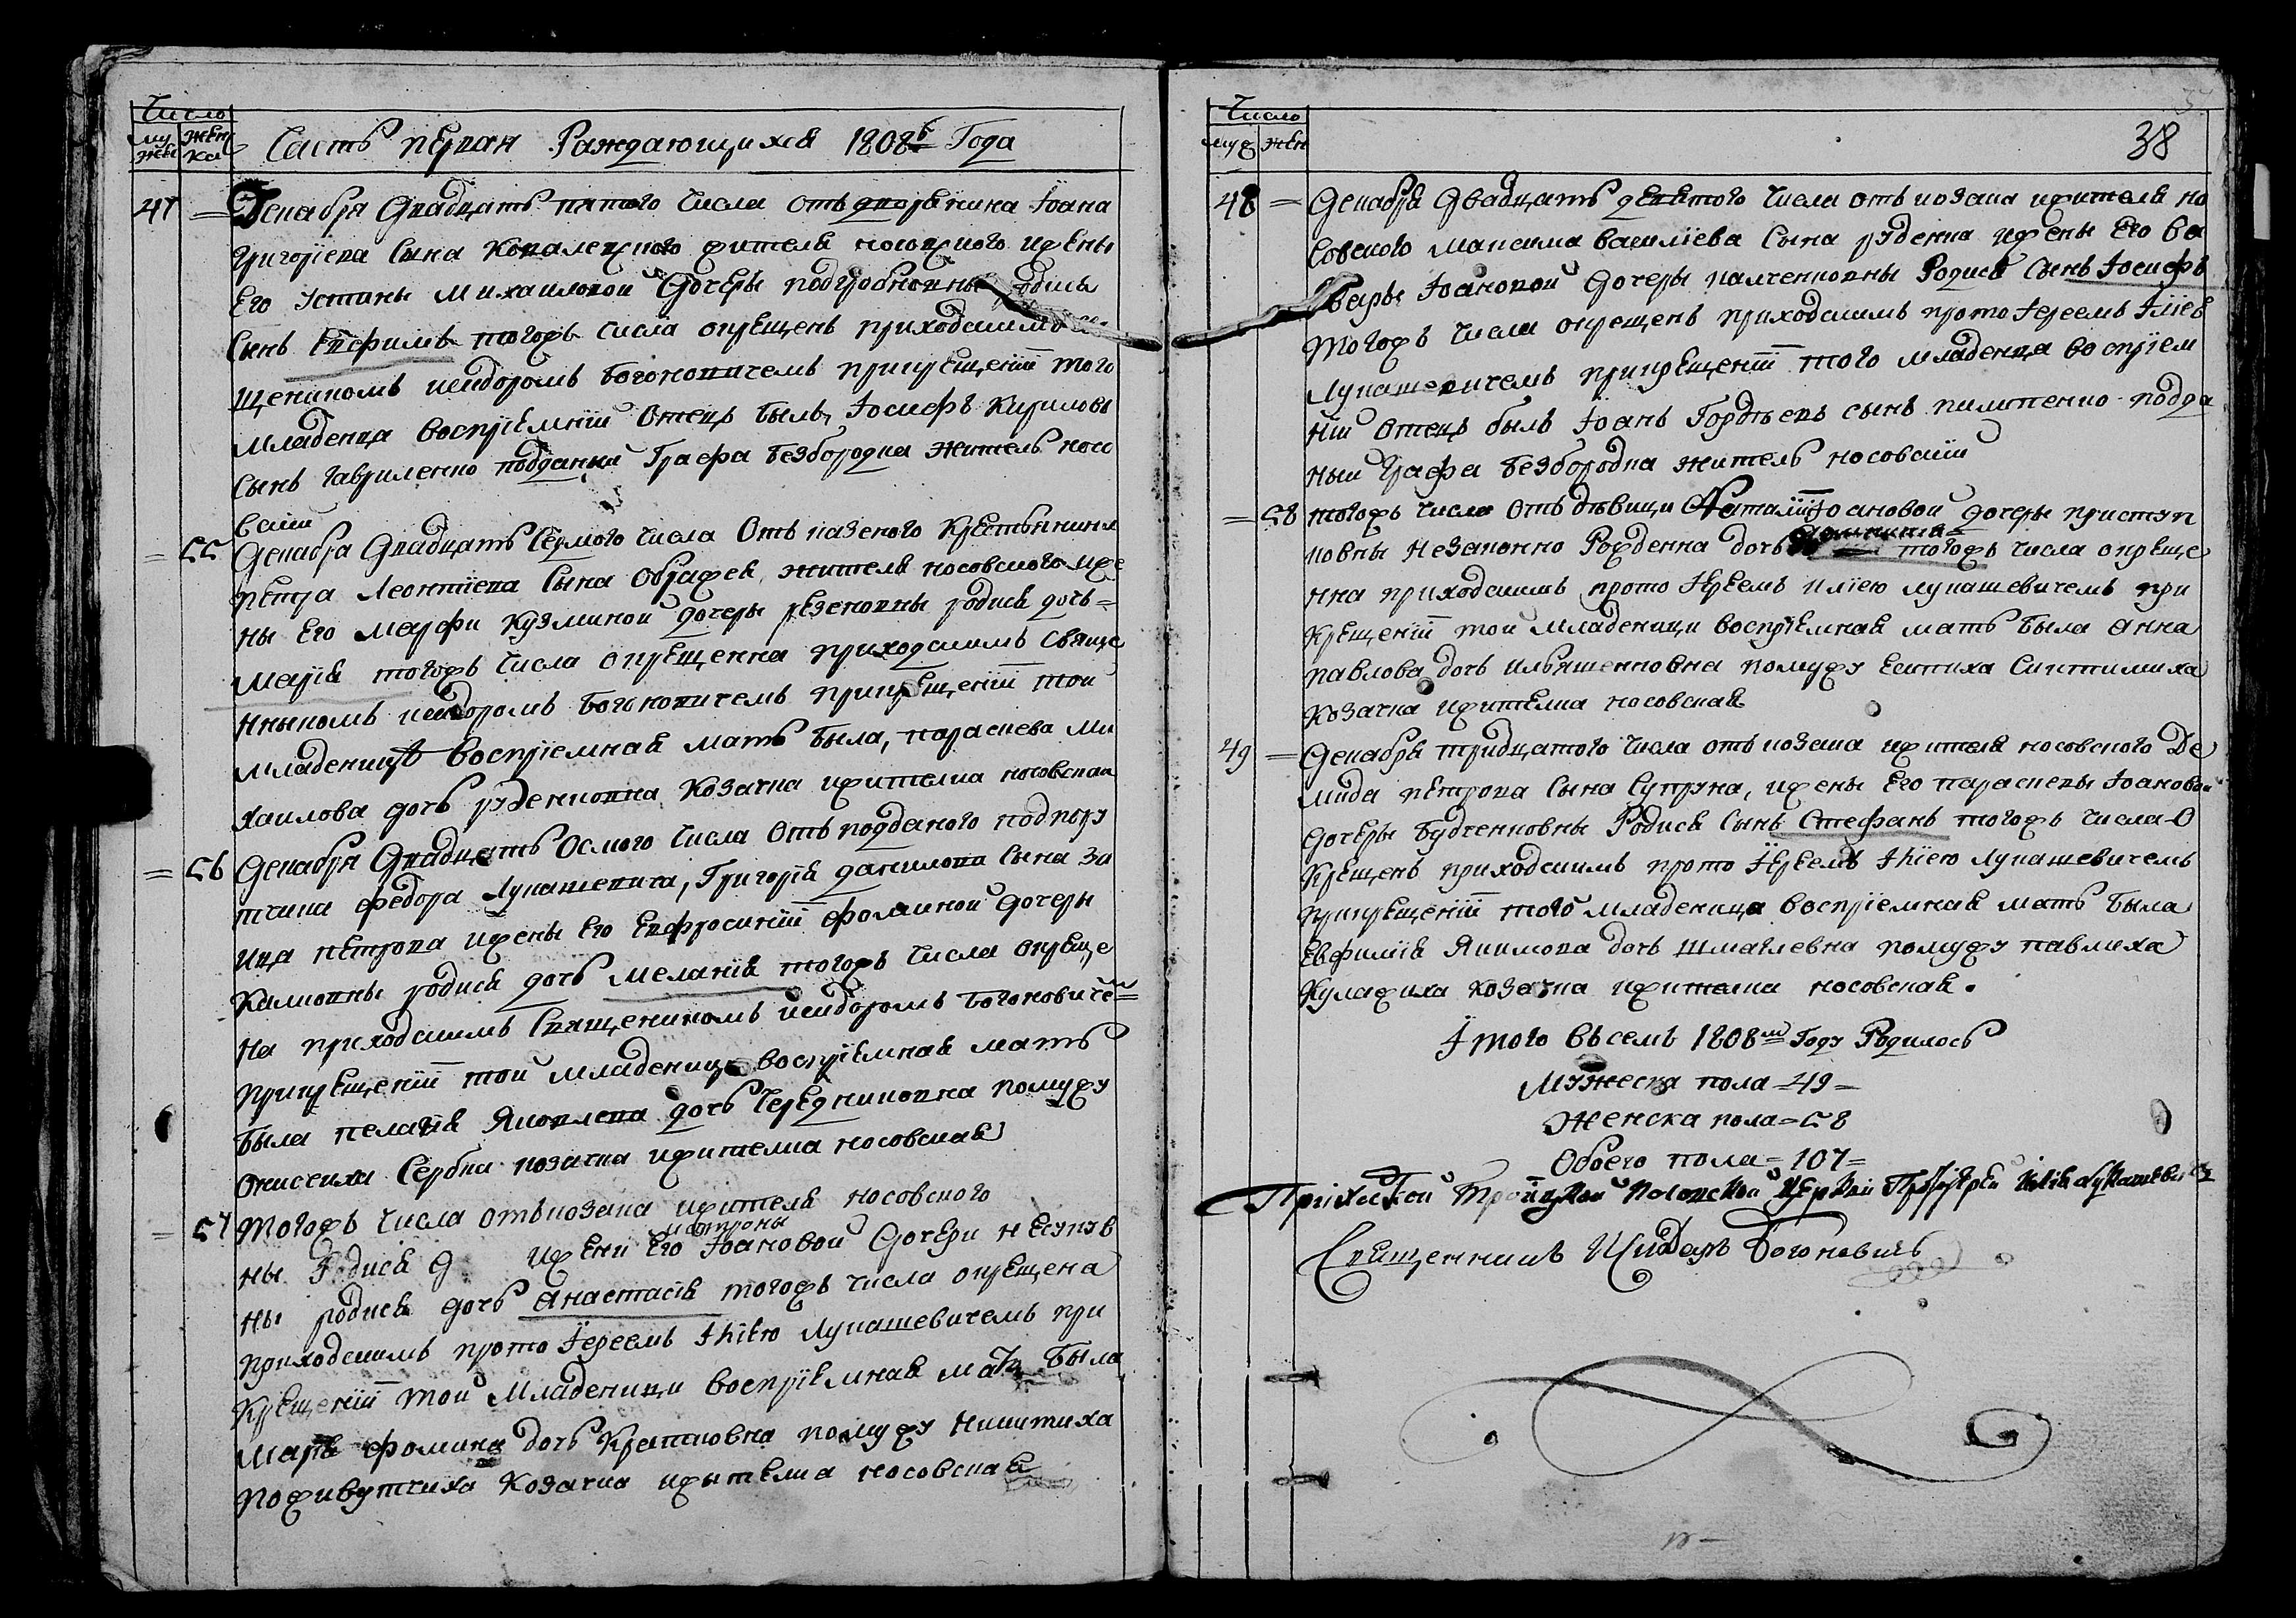 Число
му жен
жеск ска
Часть первая Раждающихся 1808г Года
47 = Декабря Двадцать пятого Числа отъ дворянина Іоана
Григоріева Сына Ковалевского жителя носовского ижены
Его Устины Михаиловой Дочеры подгробновны родись
Сынъ Евфимъ тогожъ числа окрещенъ приходскимъ
щенникомъ исидоромъ Богоновичемъ прикрещеніи того
младенца воспріемній Отецъ былъ, Іосифъ Кириловъ
Сынъ Гавриленко подданый Графа безбородка Житель носо
вскій
= 55 Декабра Двадцать Седмого Числа Отъ казеного Крестянина
петра Леонтиева Сына Ображея, жителя носовского иже
ны Его Марфи Кузминой дочеры резеновны родися дочъ =
Марія тогожъ Числа окрещенна приходскимъ Свяще
нныкомъ исидоромъ Богоновичемъ прикрещеніи тои
младеницѣ воспріемная мать была, параскева Ми
хаилова дочъ руденковна Козачка ижителка носовская
= 56 Декабря Двадцать Осмого Числа Отъ подданого подпору
тчика федора Лукашевича, Григорія данилова Сына За
ица петрова ижены Его Евфросиніи фоминой дочеры
Калиовны родися дочъ меланія тогожъ Числа окреще
на приходскимъ Священикомъ исидоромъ Богоновичем
прикрещеніи тои младеници воспріемная мать
была пелагія Яковлева дочъ Чередниковна помужу
Онисчиха Сербки козачка ижителка носовская
= 57 Тогожъ Числа отъ козака ижителя носовского
матроны
ны Родися д ижени Его Іоановой Дочери нескув
ны родися дочъ Анастасія тогожъ числа окрещена
приходскимъ прото Іереемъ Іліею Лукашевичемъ при
Крещеніи тои Младеници воспріемная мать была
Марія фомина дочъ Кратковна помужу никитиха
Поживутчиха Козачка ижытелка носовская
Число
муж жен
38
48 = Декабря Двадцать девятого Числа отъ козака ижителя но
совского Максима василіева Сына руденка ижены Его ва
рвары Іоановой Дочеры палченковны Родися Сынъ Іосифъ
тогожъ Числа окрещенъ приходскимъ прото Іереемъ Іліев
Лукашевичемъ прикрещеніи того младенца воспріем
ній Отецъ былъ Іоанъ Гордѣевъ сынъ пилипенко подда
ный Графа безбородка житель носовскій
= 58 тогожъ Числа Отъ дѣвици Наталіи Іоановой дочеры приступ
Домникія
ковны Незаконно Рожденна дочъ тогожъ числа окреще
нна приходскимъ прото Іереемъ иліею лукашевичемъ при
Крещеніи тои младеници воспріемная мать была Анна
павлова дочъ ильяшенковна помужу Евтиха Сиктимиха
Козачка ижителка носовская
49 = Декабря тридцатого Числа отъ козака ижителя носовского Де
мида петрова Сына Супруна, ижены Его параскевы Іоановой
дочеры будченковны Родися Сынъ Стефанъ тогожъ Числа О
Крещенъ приходскимъ прото Іереемъ Іліею Лукашевичемъ
прикрещеніи того младеница воспріемная мать была
Евфимія Якимова дочъ шмаглевна помужу павлиха
Кулажиха козачка ижителка носовская.
Итого въсемъ 1808м Году Родилось
Мужеска пола = 49 =
Женска пола = 58
Обоего пола = 107 =
Прихоцкой Троицкой Носовской Церкви Протоіерей Илія Лукашевичъ
Священникъ Исидоръ Богоновичъ